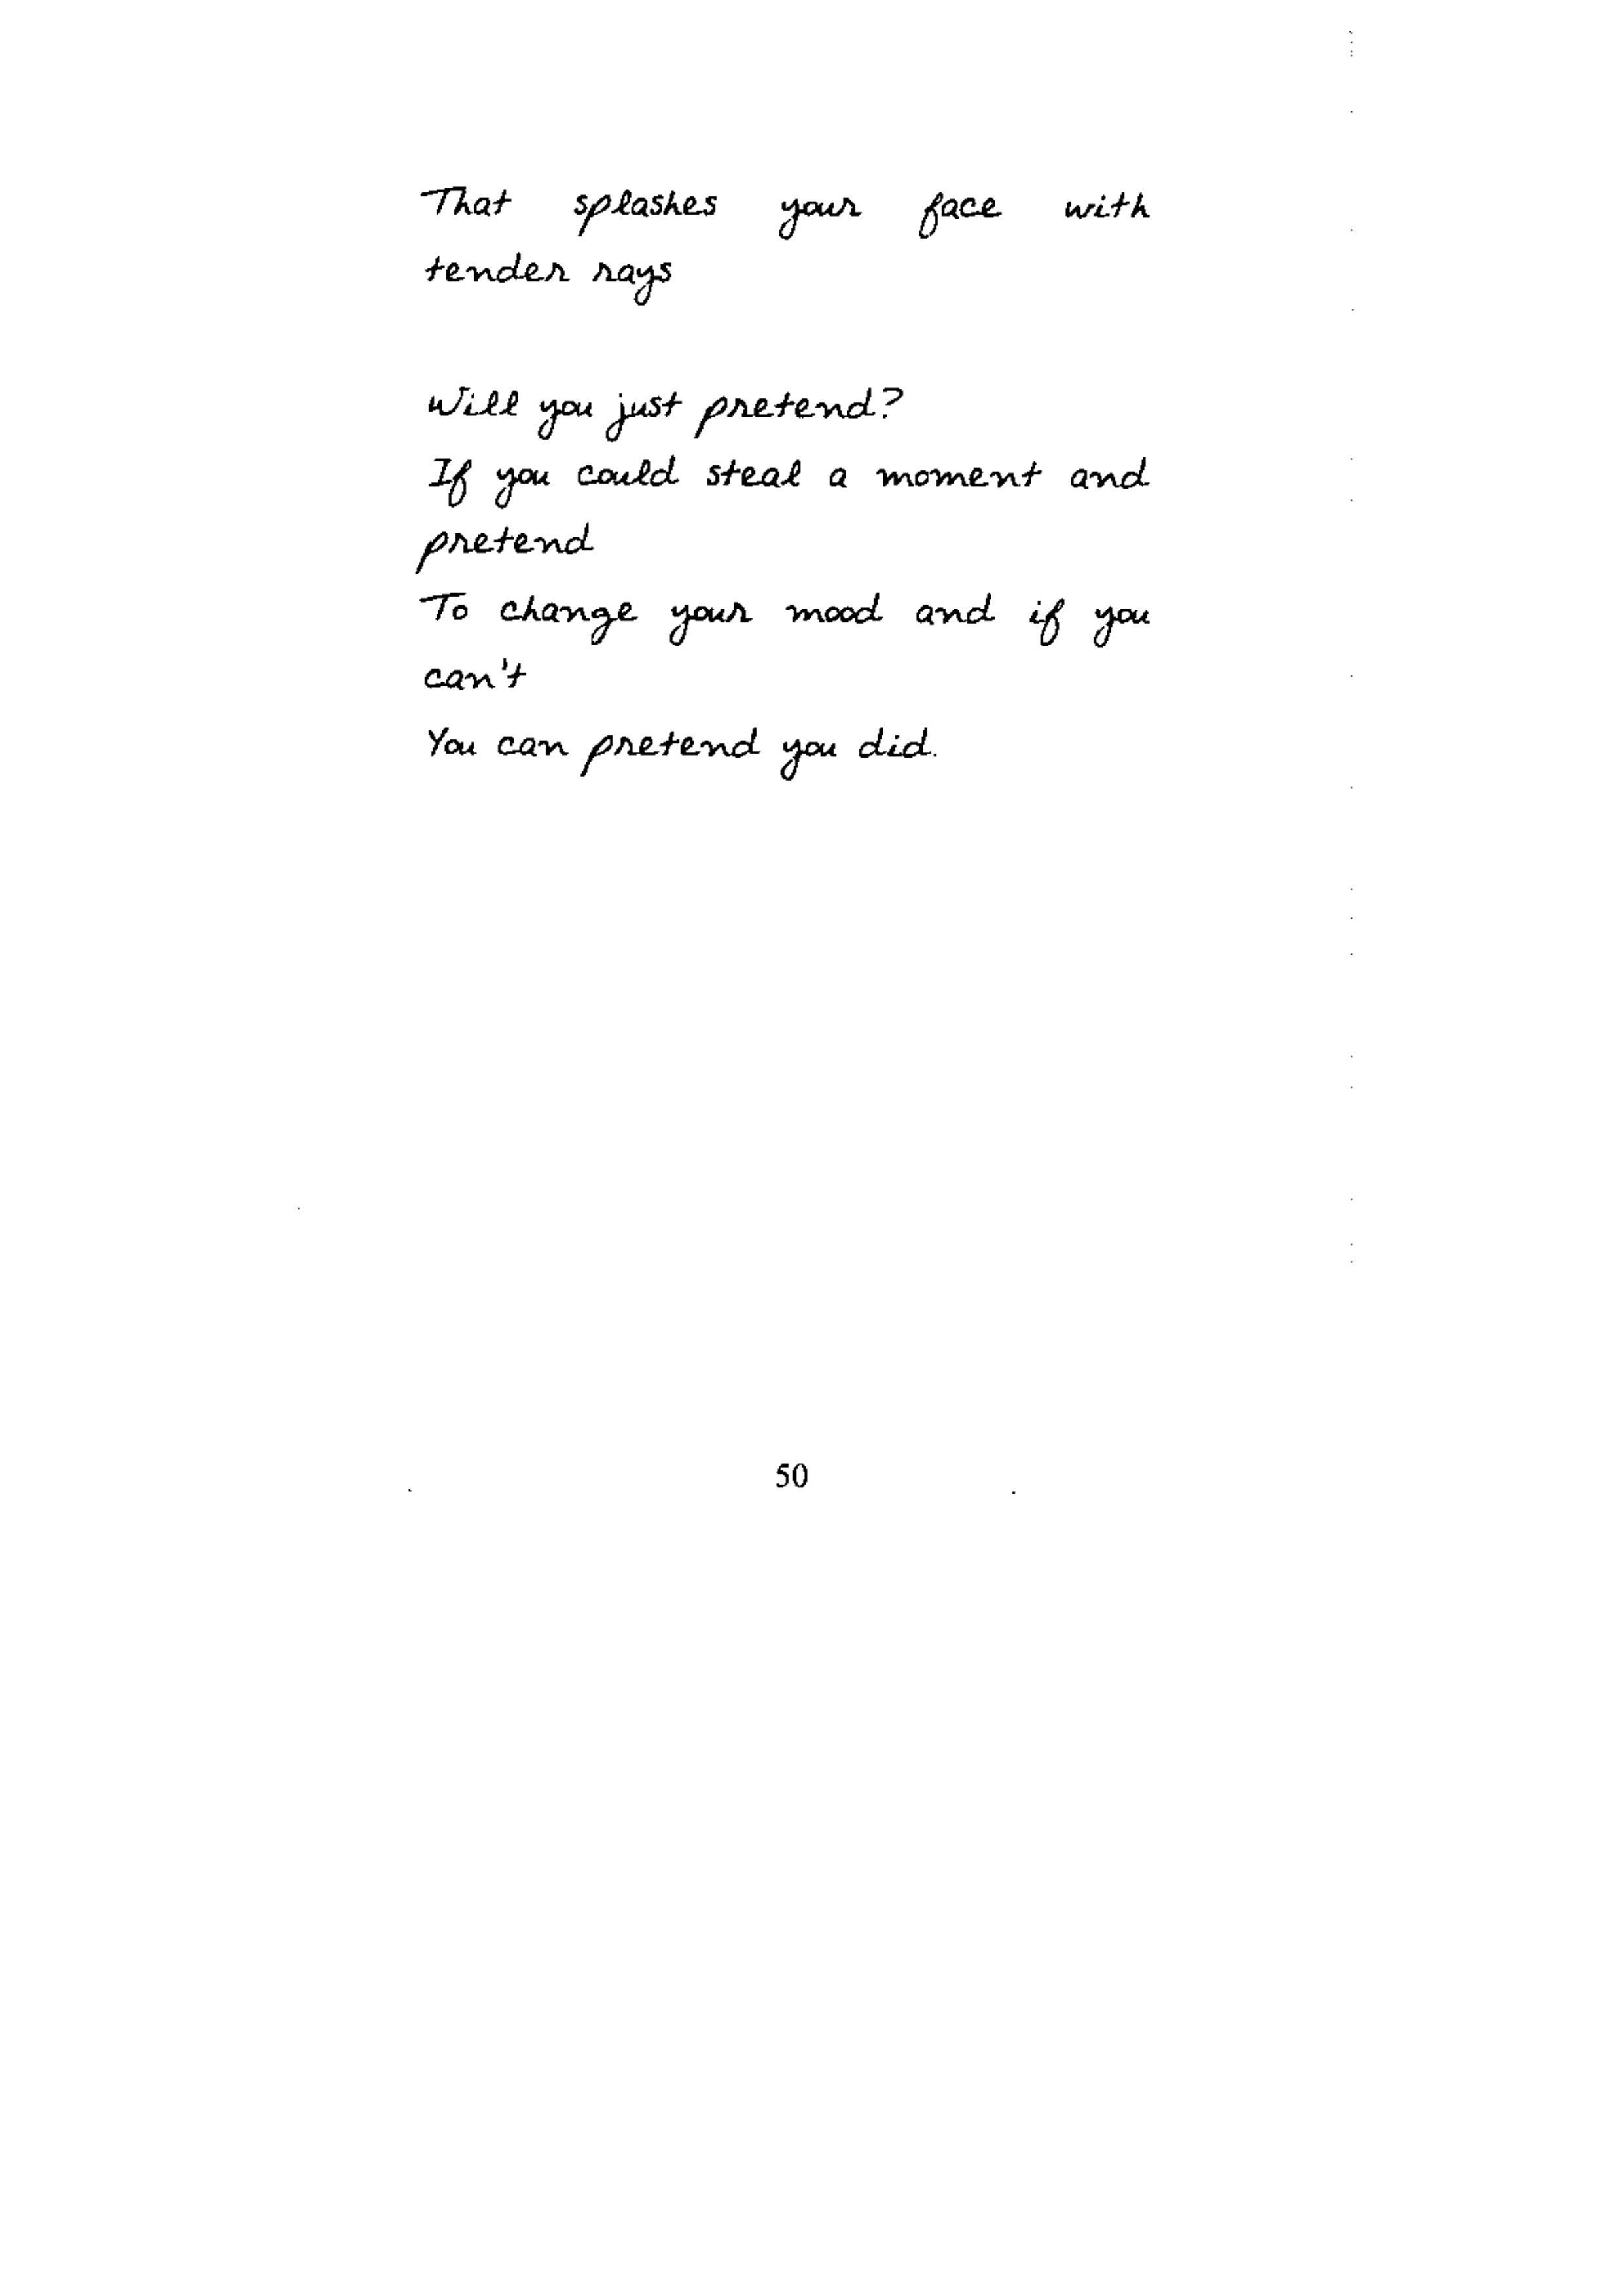 That splashes your face with
tender rays
Will you just pretend?
If you could steal a moment and
pretend
To change your mood and if you
can't
You can pretend you did.
50